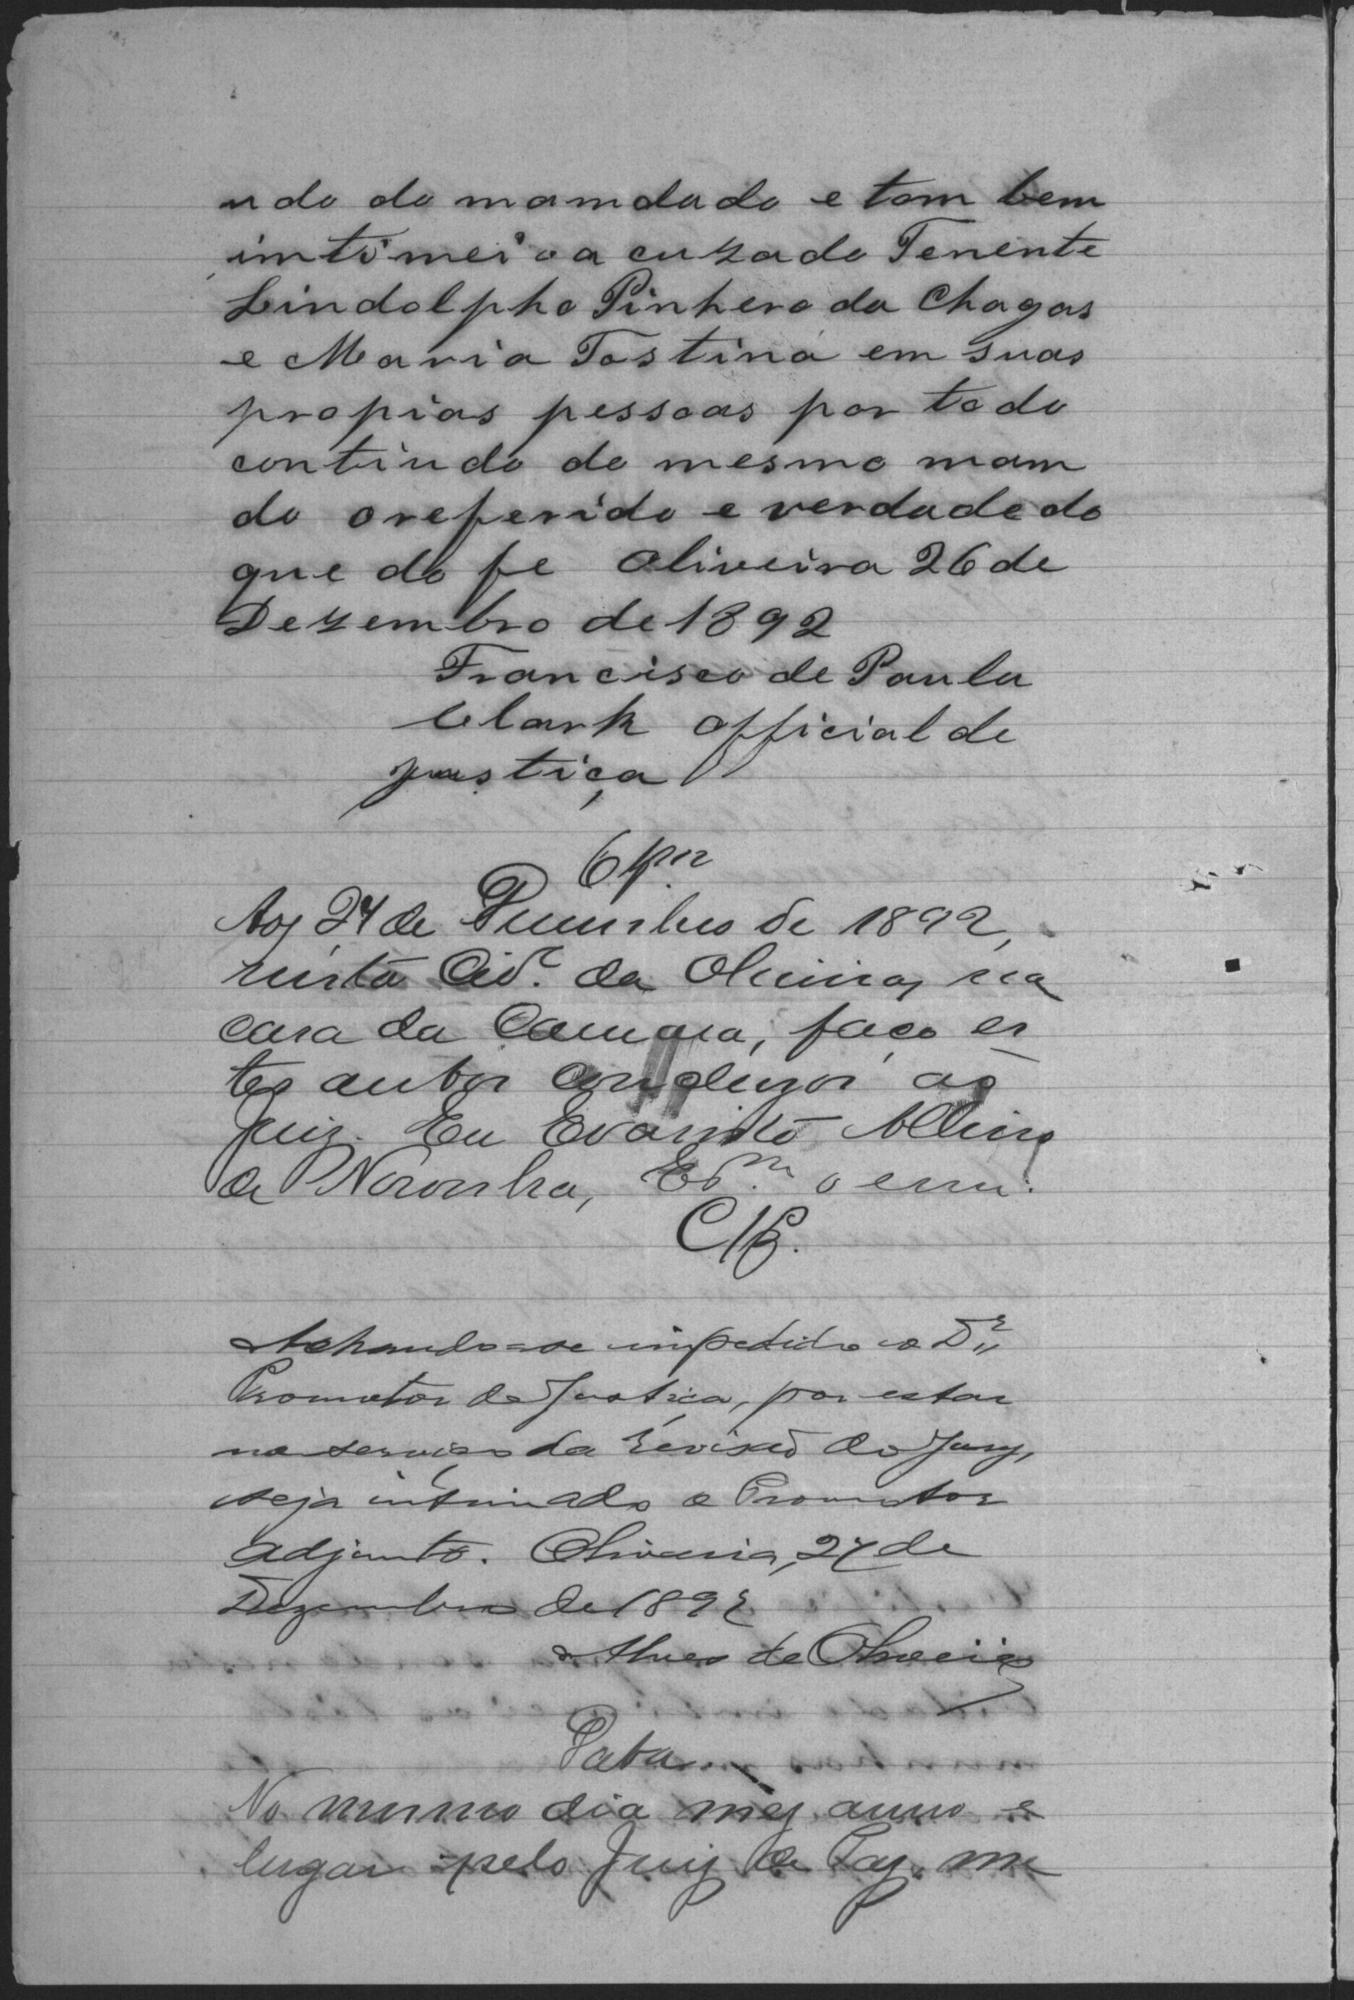 udo do mamdado e tom bem
imtimei oa cuzado Tenente
Lindolpho Pinhero da Chagas
e Maria Tostina em suas
propias pessoas por todo
contiudo do mesmo mam
do oreferido e verdade do
que do fe Oliveira 26 de
Dezembro de 1892
Francisco de Paula
Clark official de
justiça
Aos 27 de Dezembro de 1892,
nesta Cid.e da Oliveira, na
casa da Camara, faço es
tes autos conclusos ao
Juiz. Eu Evaristo
de Noronha, Es.m o escrevi.
Clz.
Achando-se impedido o Dr.
Promotor de Justiça, por estar
no serviço da revisão do Jury,
seja intimado o Promotor
adjunto. Oliveira, 27 de
Dezembro de 1892
Alves de Oliveira
Data
No mesmo dia mez anno e
lugar pelo Juiz de Paz me